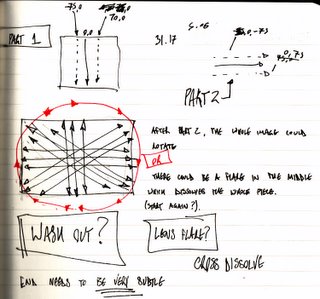 PART 1
-75,0
0,0
75,0
31.17
0,-75
0,75
PART 2
AFTER PART 2, THE WHOLE IMAGE COULD
ROTATE
OR
THERE COULD BE A FLARE IN THE MIDDLE
WHICH DISSOLVES THE WHOLE PIECE.
(START AGAIN?).
WASH OUT?
LENS FLARE?
CROSS DISSOLVE
END NEEDS TO BE VERY SUBTLE